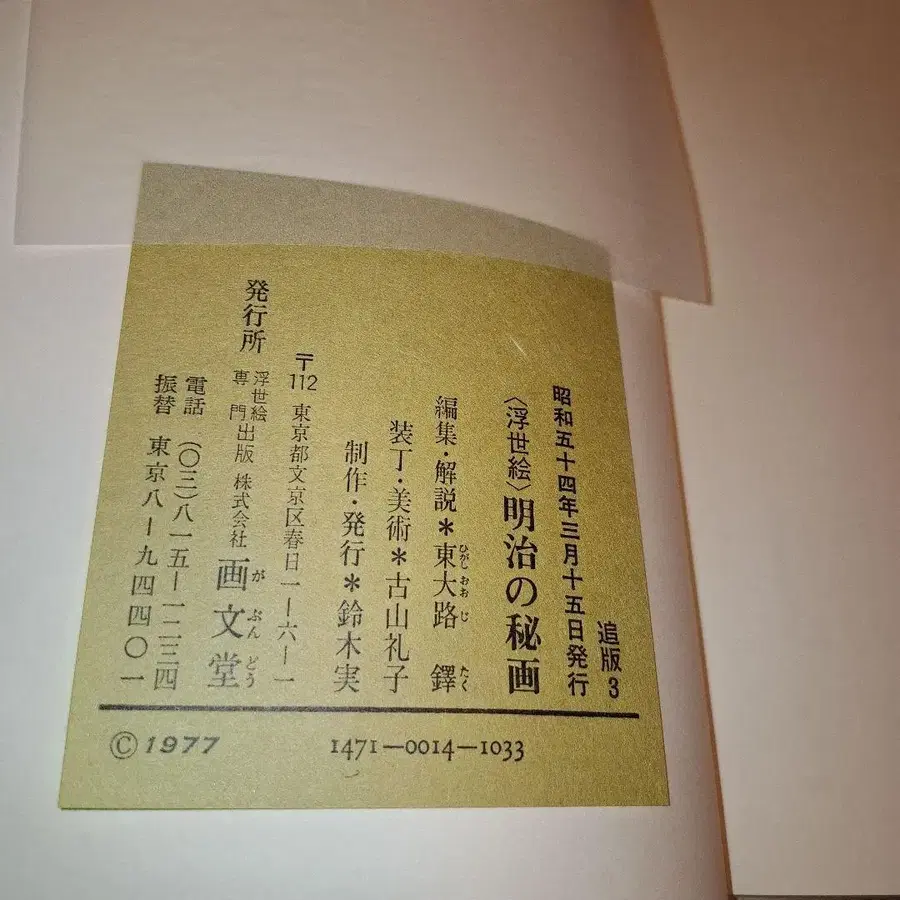 追版3
昭和五十四年三月十五日発行
〈浮世絵〉明治の秘画
編集・解説*東大路 鐸
ひがし おお じ たく
装丁・美術*古山礼子
制作・発行*鈴木実
〒112 東京都文京区春日一ー六ー一
発行所 浮世絵専門出版 株式会社 画文堂
が ぶん どう
電話 (〇三)八一五ー一二三四
振替 東京八ー九四四〇一
©1977 1471—0014—1033